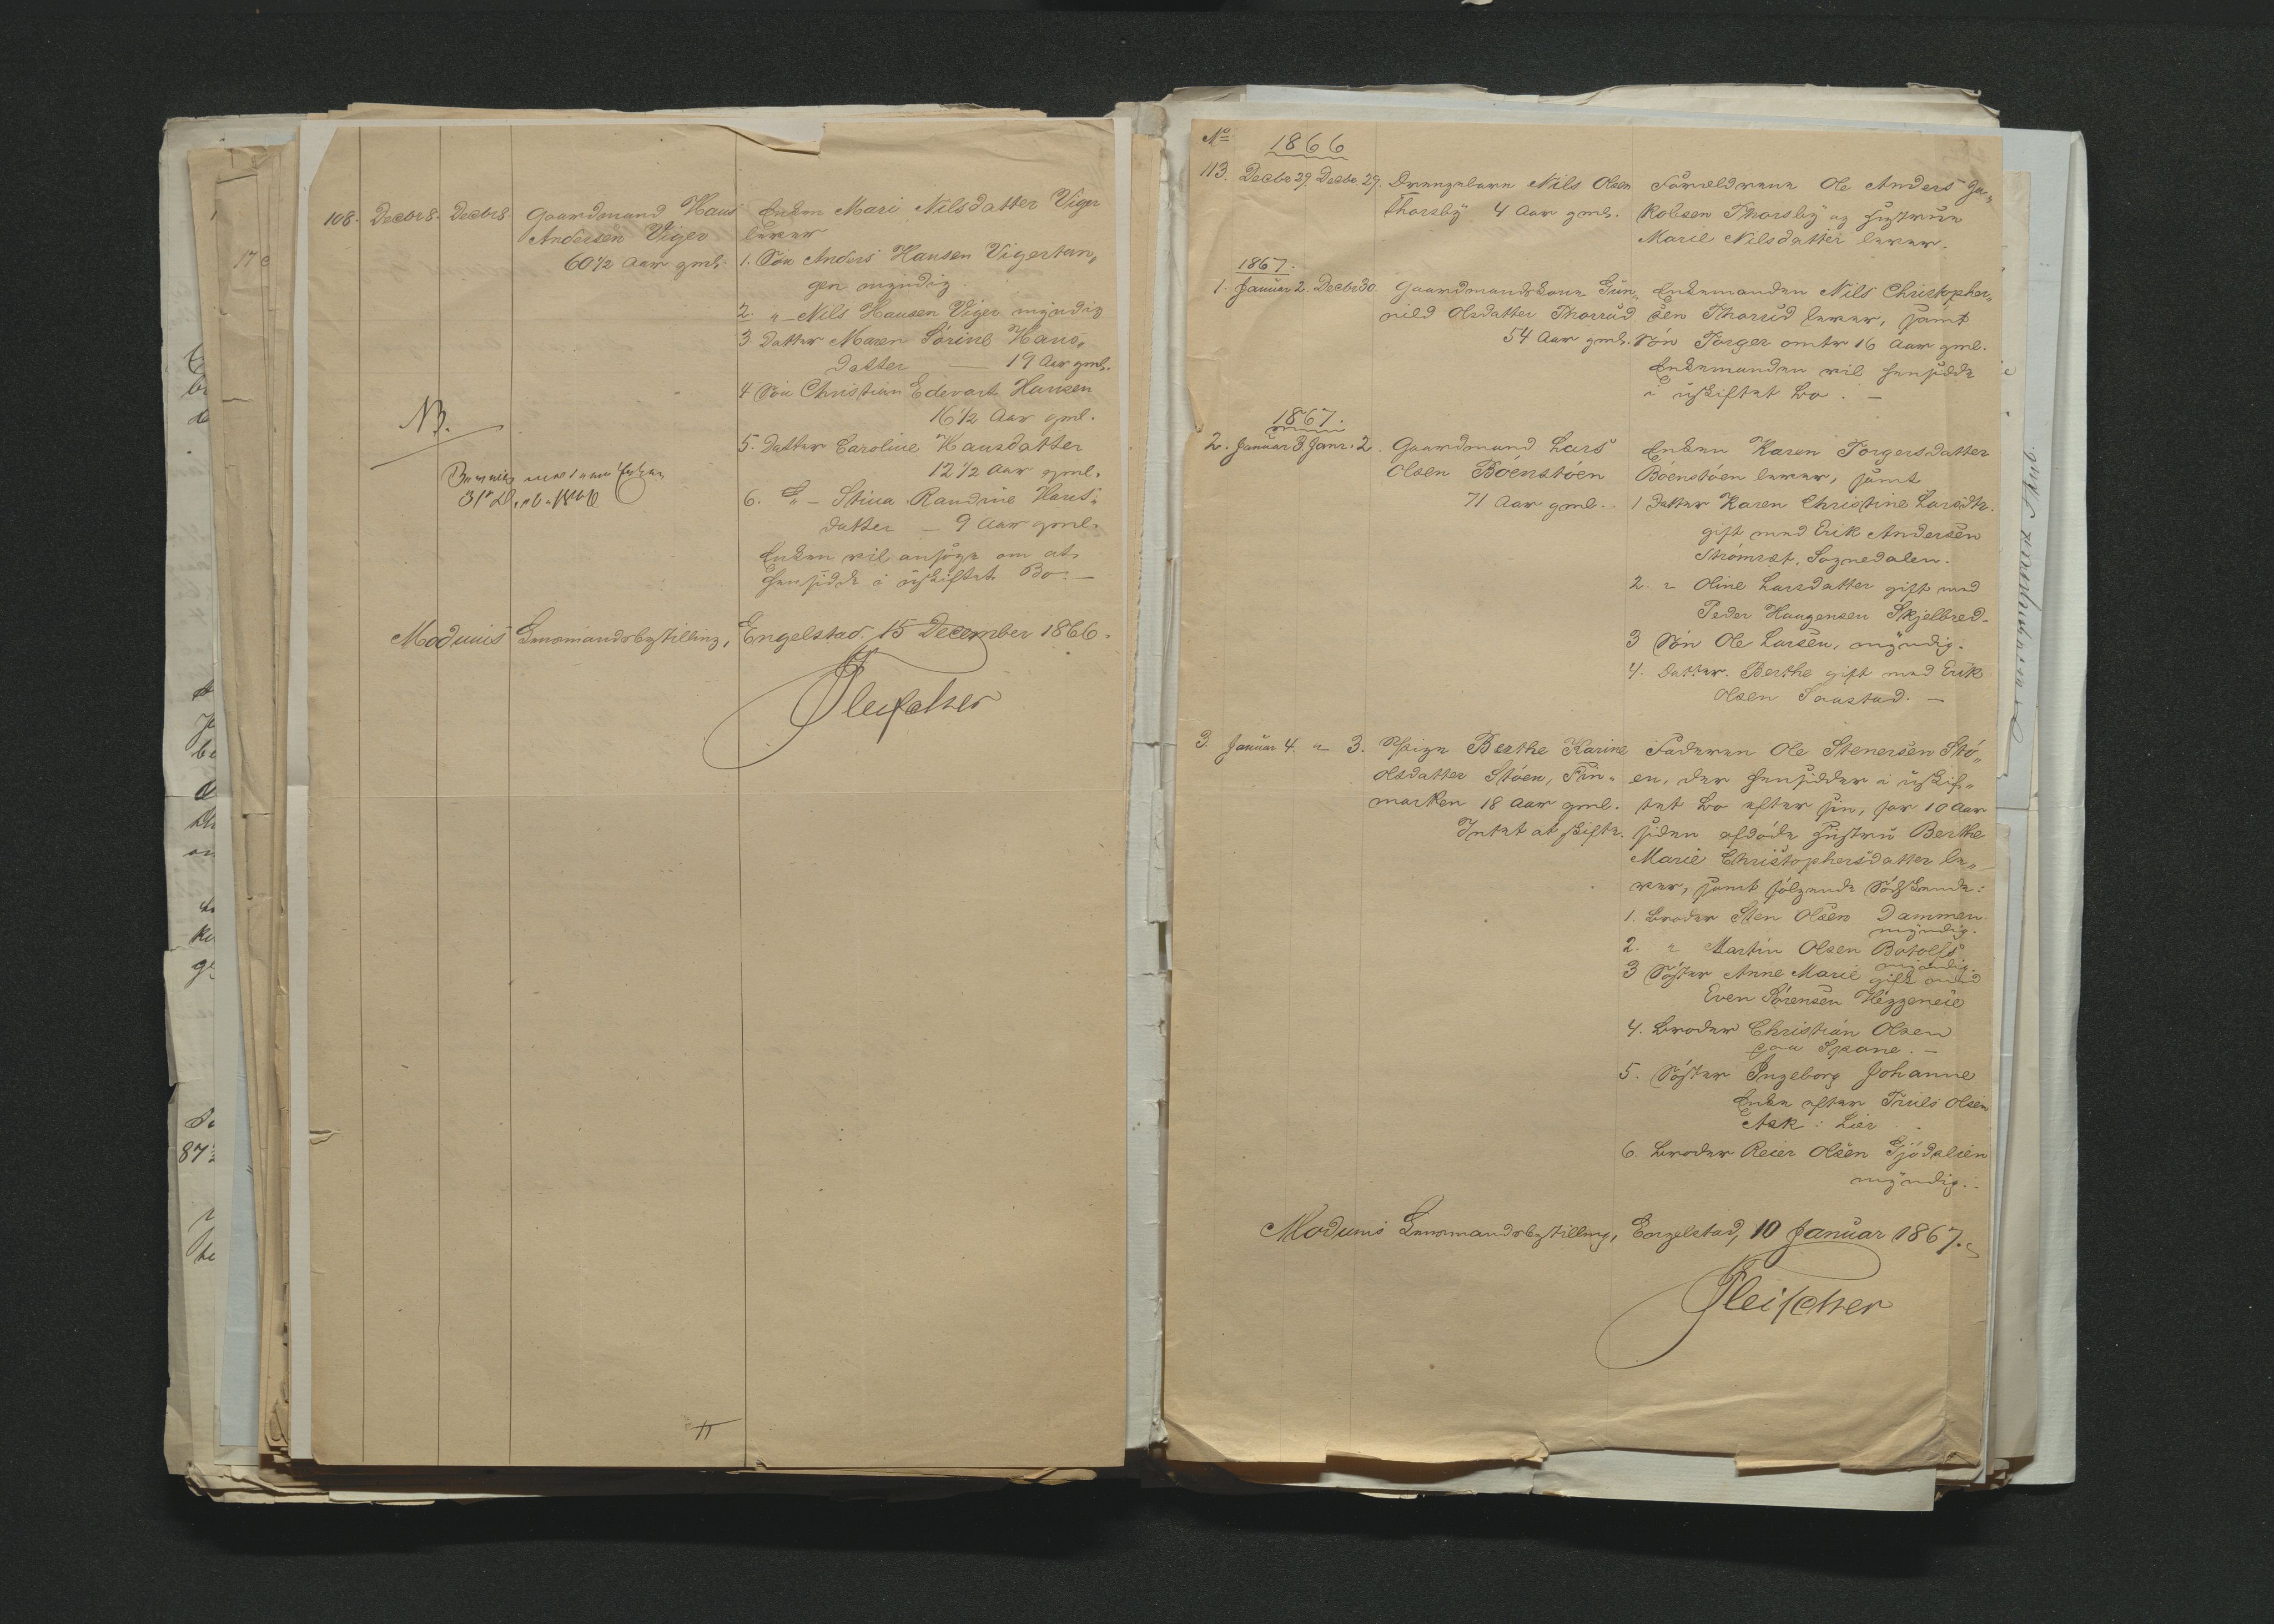 108. Decbr 8. Decbr 8. Gaardmand Hans
Andersen Viger
60 1/2 Aar gml.
Enken Mari Nilsdatter Viger
lever
1. Søn Anders Hansen Vigertan„
gen myndig.
2. „ – Nils Hansen Viger myndig
3. Datter Maren Sörine Hans„
datter — 19 Aar gml.
4 Søn Christian Edevart Hansen
16 1/2 Aar gml.
5. Datter Caroline Hansdatter
12 1/2 Aar gml.
6. „ – Stina Randine Hans„
datter — 9 Aar gml.
Enken vil ansøge om at
hensidde i uskiftet Bo. —
NB.
31
Modums Lensmandsbestilling, Engelstad. 15 December 1866.
Fleischer
11
No 1866
113. Decbr 29. Decbr. 29. Drengebarn Nils Olsen
Thorsby 4 Aar gml.
Forældrene Ole Anders Ja„
kobsen Thorsby og Hustrue
Marie Nilsdatter lever.
1867.
1. Januar 2. Decbr 30. Gaardmandskone Gun„
nild Olsdatter Thorrud
54 Aar gml.
Enkemanden Nils Christopher„
sen Thorrud lever, samt
Søn Torger omtr 16 Aar gml.
Enkemanden vil hensidde
i uskiftet Bo. —
1867.
2. Januar 3. Janr. 2. Gaardmand Lars
Olsen Böenstöen
71 Aar gml.
Enken Karen Torgersdatter
Böenstöen lever, samt
1 Datter Karen Christine Larsdtr.
gift med Erik Andersen
Strömsæt, Sognedalen.
2. „ Oline Larsdatter gift med
Peder Haagensen Skjelbred.
3 Søn Ole Larsen, myndig.
4. Datter Berthe gift med Erik
Olsen Saastad. —
3. Januar 4. „ 3. Pige Berthe Karine
Olsdatter Stöen, Fin„
marken 18 Aar gml.
Intet at skifte.
Faderen Ole Stenersen Stö„
en, der hensidder i uskif„
tet Bo efter sin, for 10 Aar
siden afdöde Hustru Berthe
Marie Christophersdatter le„
ver, samt fölgende Södskende:
1. Broder Sten Olsen Dammen
myndig.
2. „ Martin Olsen Botolfs
myndig.
3 Söster Anne Marie gift med
Even Sörensen Heggeneie
4. Broder Christian Olsen
paa Spone. —
5. Söster Ingeborg Johanne
Enke efter Truls Olsen
Ask i Lier
6. Broder Reier Olsen Gjödalien
myndig. –
Modums Lensmandsbestilling, Engelstad, 10 Januar 1867.
Fleischer